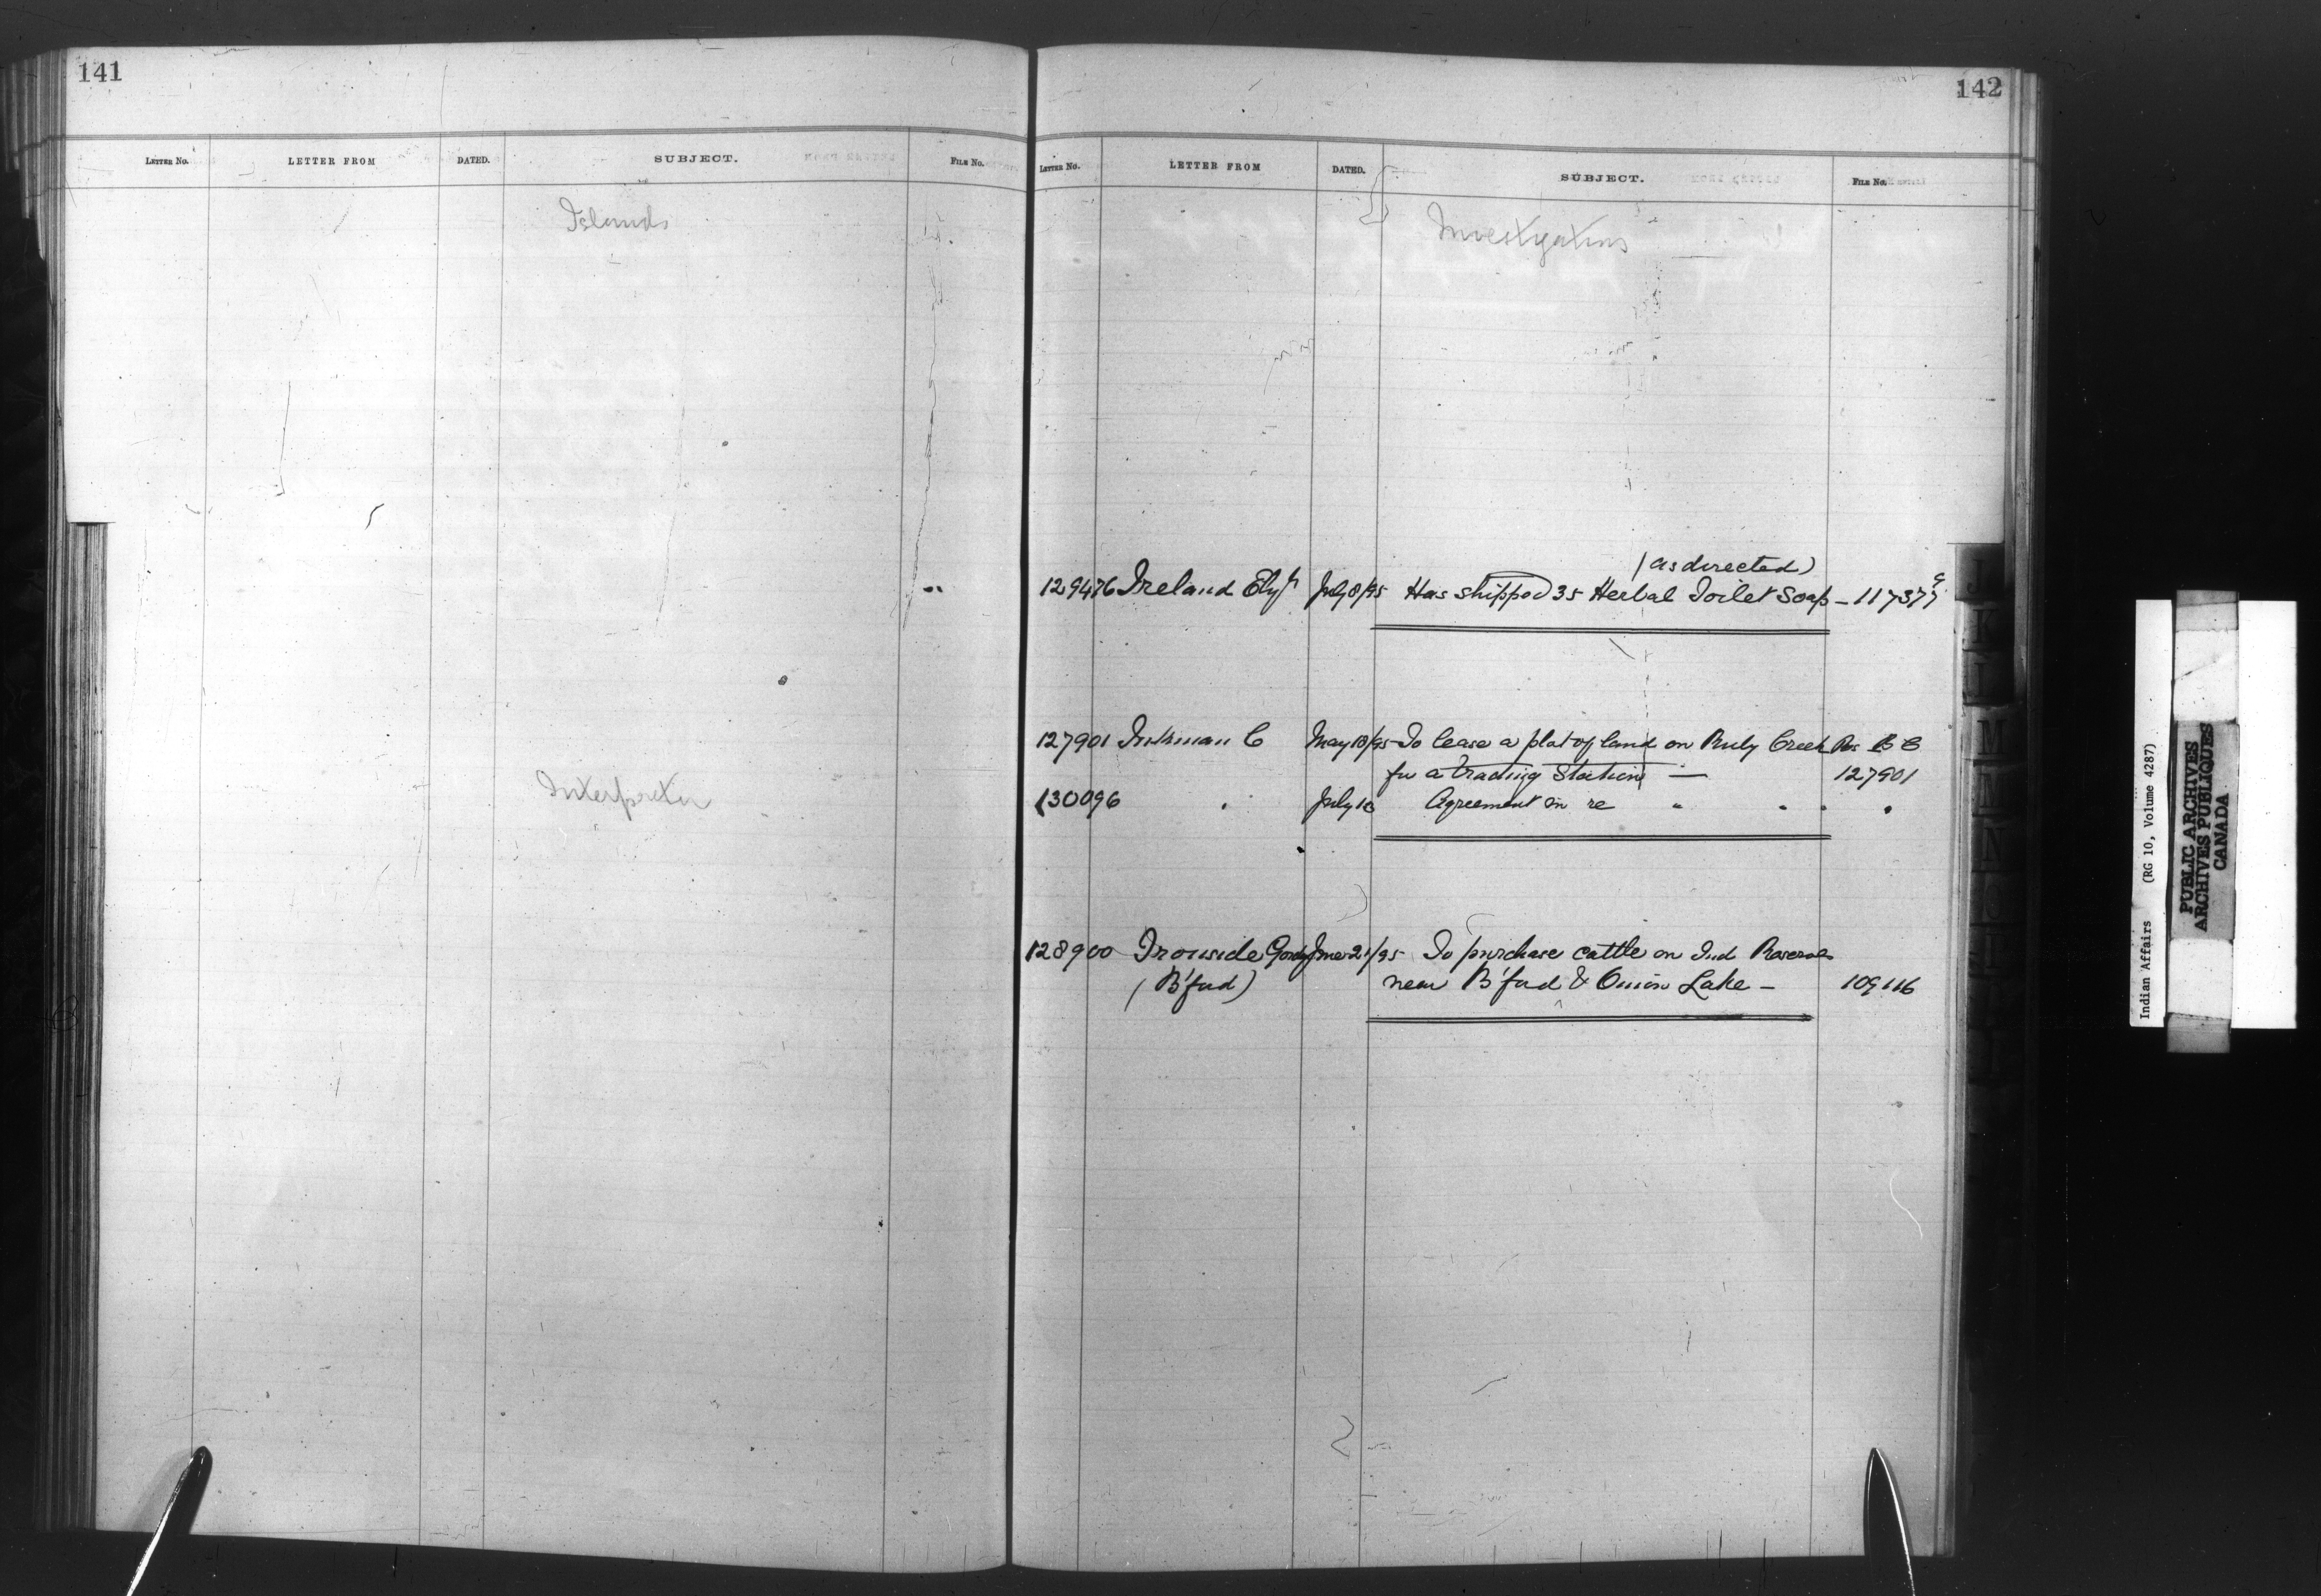 141
LETTER NO. LETTER FROM DATED. SUBJECT. FILE No.
Islands
Interpreter
142
LETTER NO. LETTER FROM DATED. SUBJECT. FILE No.
Investigations
(as directed)
129476 Ireland July 8/95 Has shipped 35 Herbal Toilet Soap – 117377
127901 C May 18/95 To lease a plat of land on Creek Res B C
for a trading Station — 127901
130096 " July 10 Agreement in re " " " "
128900 Ironside June 21/95 To purchase cattle on Ind Reserves
(B'ford) near B'ford & Onion Lake – 109116
Indian Affairs (RG 10, Volume 4287)
PUBLIC ARCHIVES
ARCHIVES PUBLIQUES
CANADA